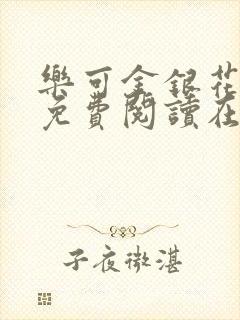 樂可金銀花
免費閱讀在
子夜微湛